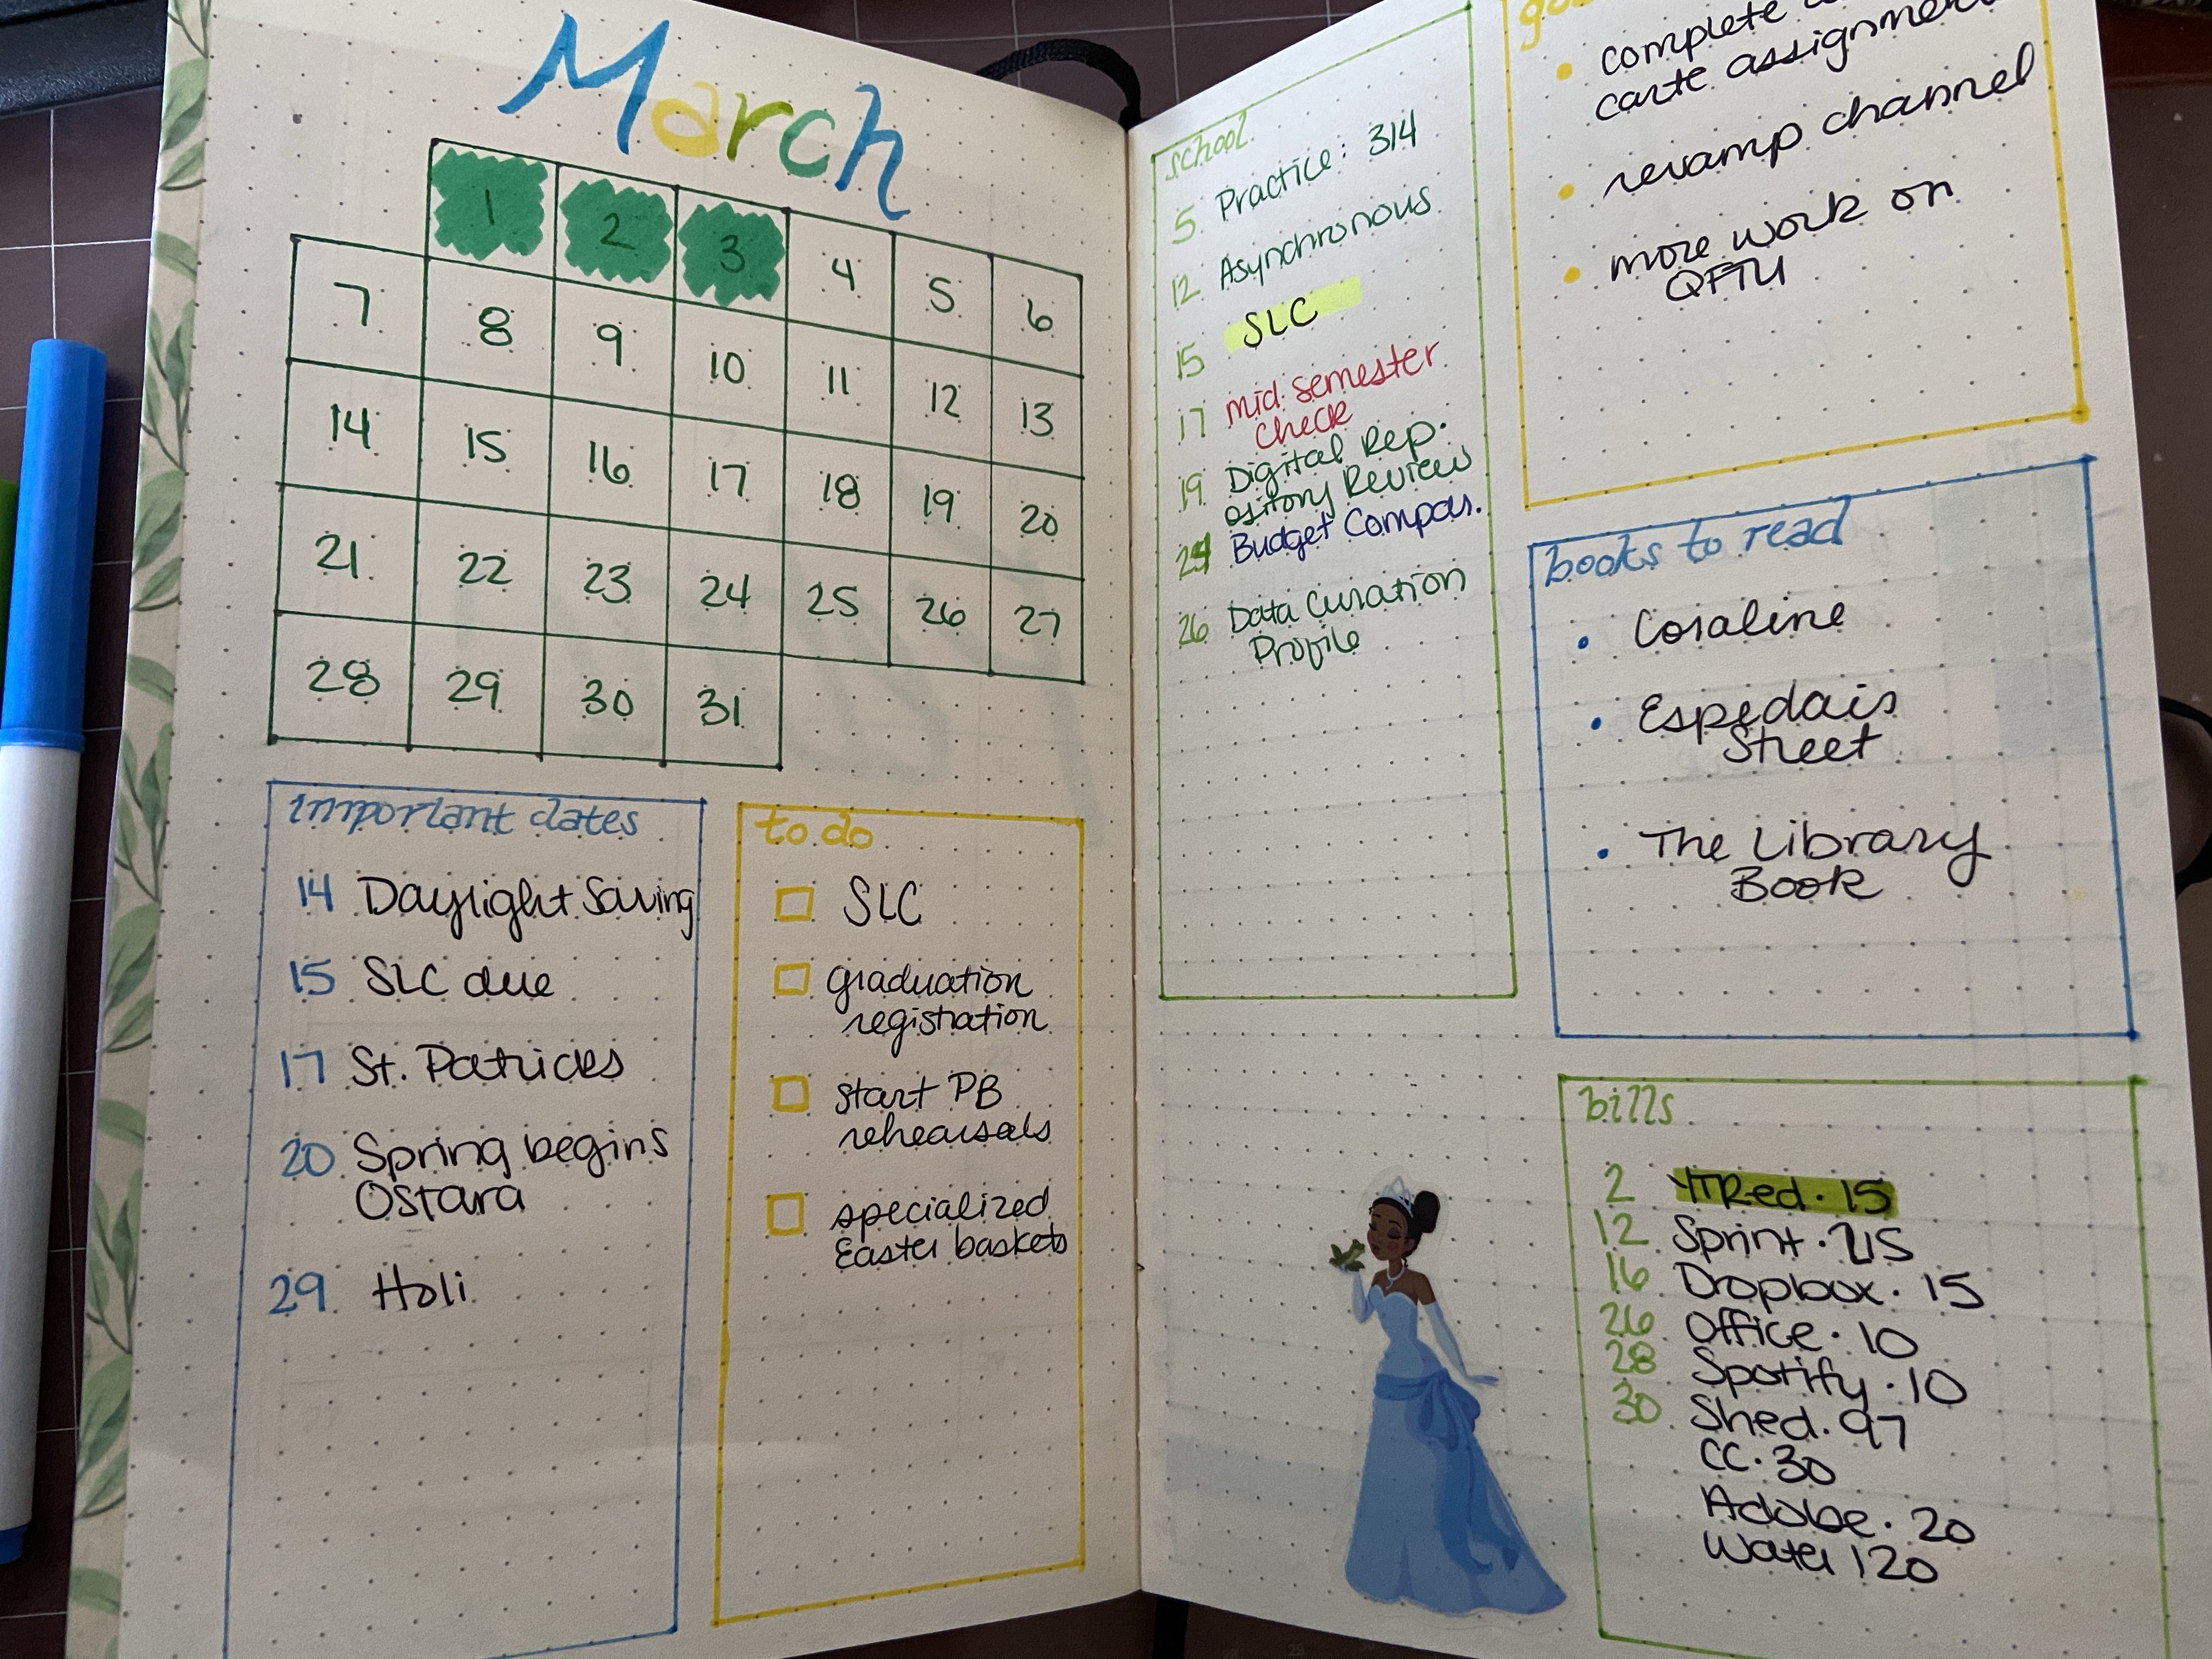 March
1 2 3 4 5 6
7 8 9 10 11 12 13
14 15 16 17 18 19 20
21 22 23 24 25 26 27
28 29 30 31
important dates
14 Daylight Saving
15 SLC due
17 St. Patricks
20 Spring begins
Ostara
29 Holi
to do
SLC
graduation
registration
start PB
rehearsals
specialized
Easter baskets
school
5 Practice: 314
12 Asynchronous
15 SLC
17 mid semester
check
19 Digital Rep.
ository Review
Budget Compas.
26 Data Curation
Profile
complete
carte assignment
• revamp channel
• more work on
QFTU
books to read
• Coraline
• Espedais
Street
• The Library
Book
bills
2 YTRed • 15
12 Sprint • 215
16 Dropbox • 15
26 Office • 10
28 Spotify • 10
30 Shed • 97
CC • 30
Adobe • 20
Water 120